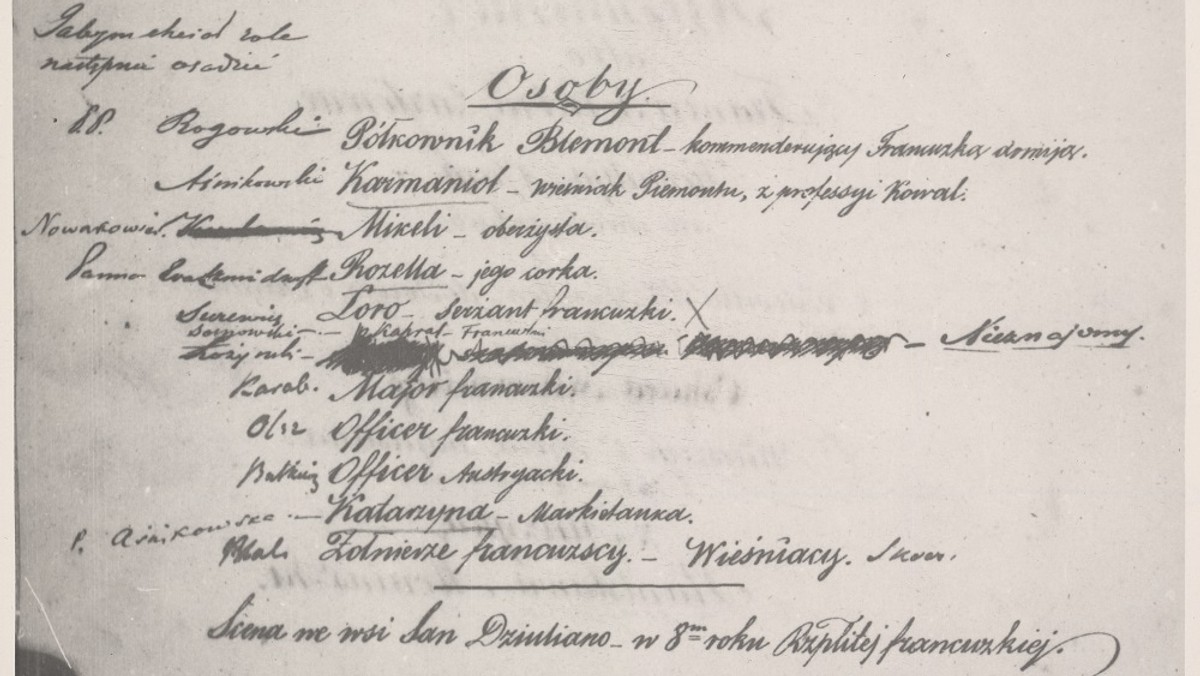 Jabym chciał role
następnie osadzić
Osoby.
PP. Rogowski Półkownik Blemont – kommenderujący Francuzką armiją.
Aśnikowski Karmaniol – wieśniak Piemontu, z professyi Kowal.
Nowakowski. Mikeli – oberżysta.
Panna Rozella – jego corka.
Loro – Serżant francuzki.
Sosnowski – p. Kapral – Francuzki
– Nieznajomy.
Karab. Major francuzki.
Officer francuzki.
Officer Austryacki.
P. Aśnikowska – Katarzyna – Markietanka.
Żołnierze francuzscy. – Wieśniacy.
Scena we wsi San Dziuliano – w 8m roku Rzplitej francuzkiej.